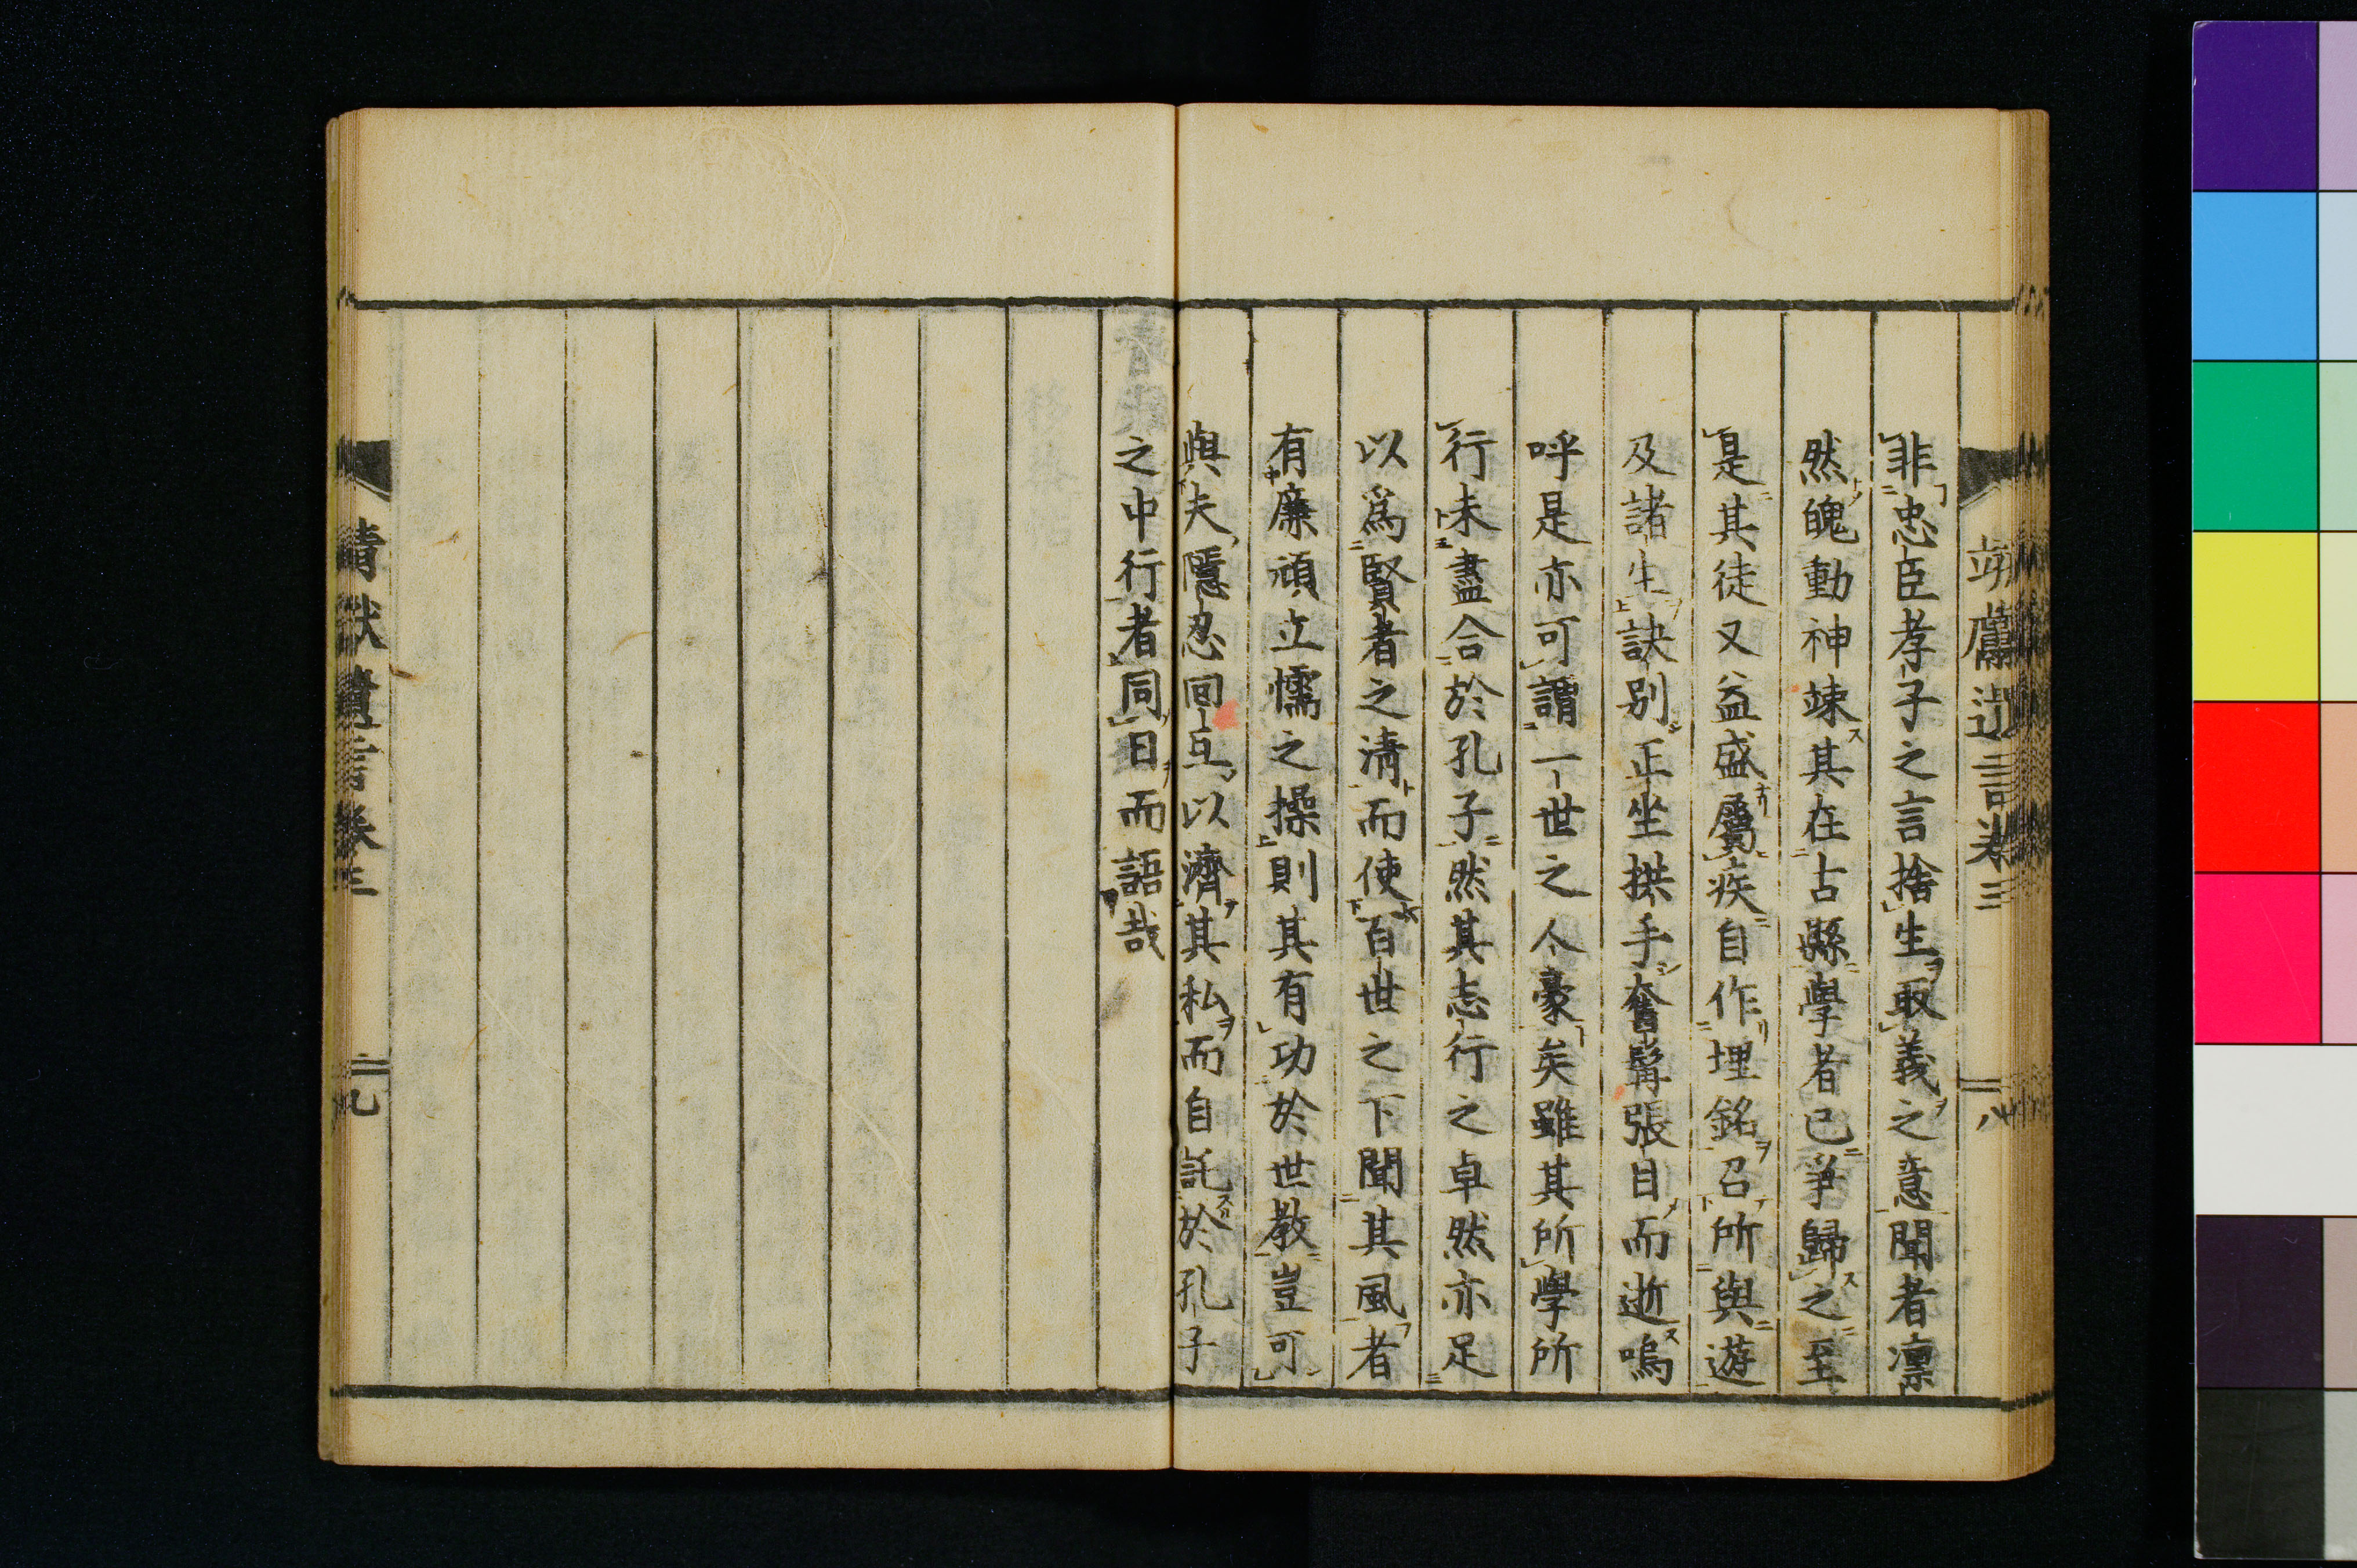 靖獻遺言卷三
二八
非忠臣孝子之言捨生取義之意聞者凛
然魄動神竦其在古縣學者已爭歸之至
是其徒又益盛屬疾自作埋銘召所與遊
及諸生訣別正坐拱手奮髯張目而逝嗚
呼是亦可謂一世之人豪矣雖其所學所
行未盡合於孔子然其志行之卓然亦足
以爲賢者之淸而使百世之下聞其風者
有廉頑立懦之操則其有功於世教豈可
與夫隱忍回互以濟其私而自託於孔子
之中行者同日而語哉
靖獻遺言卷三
二九